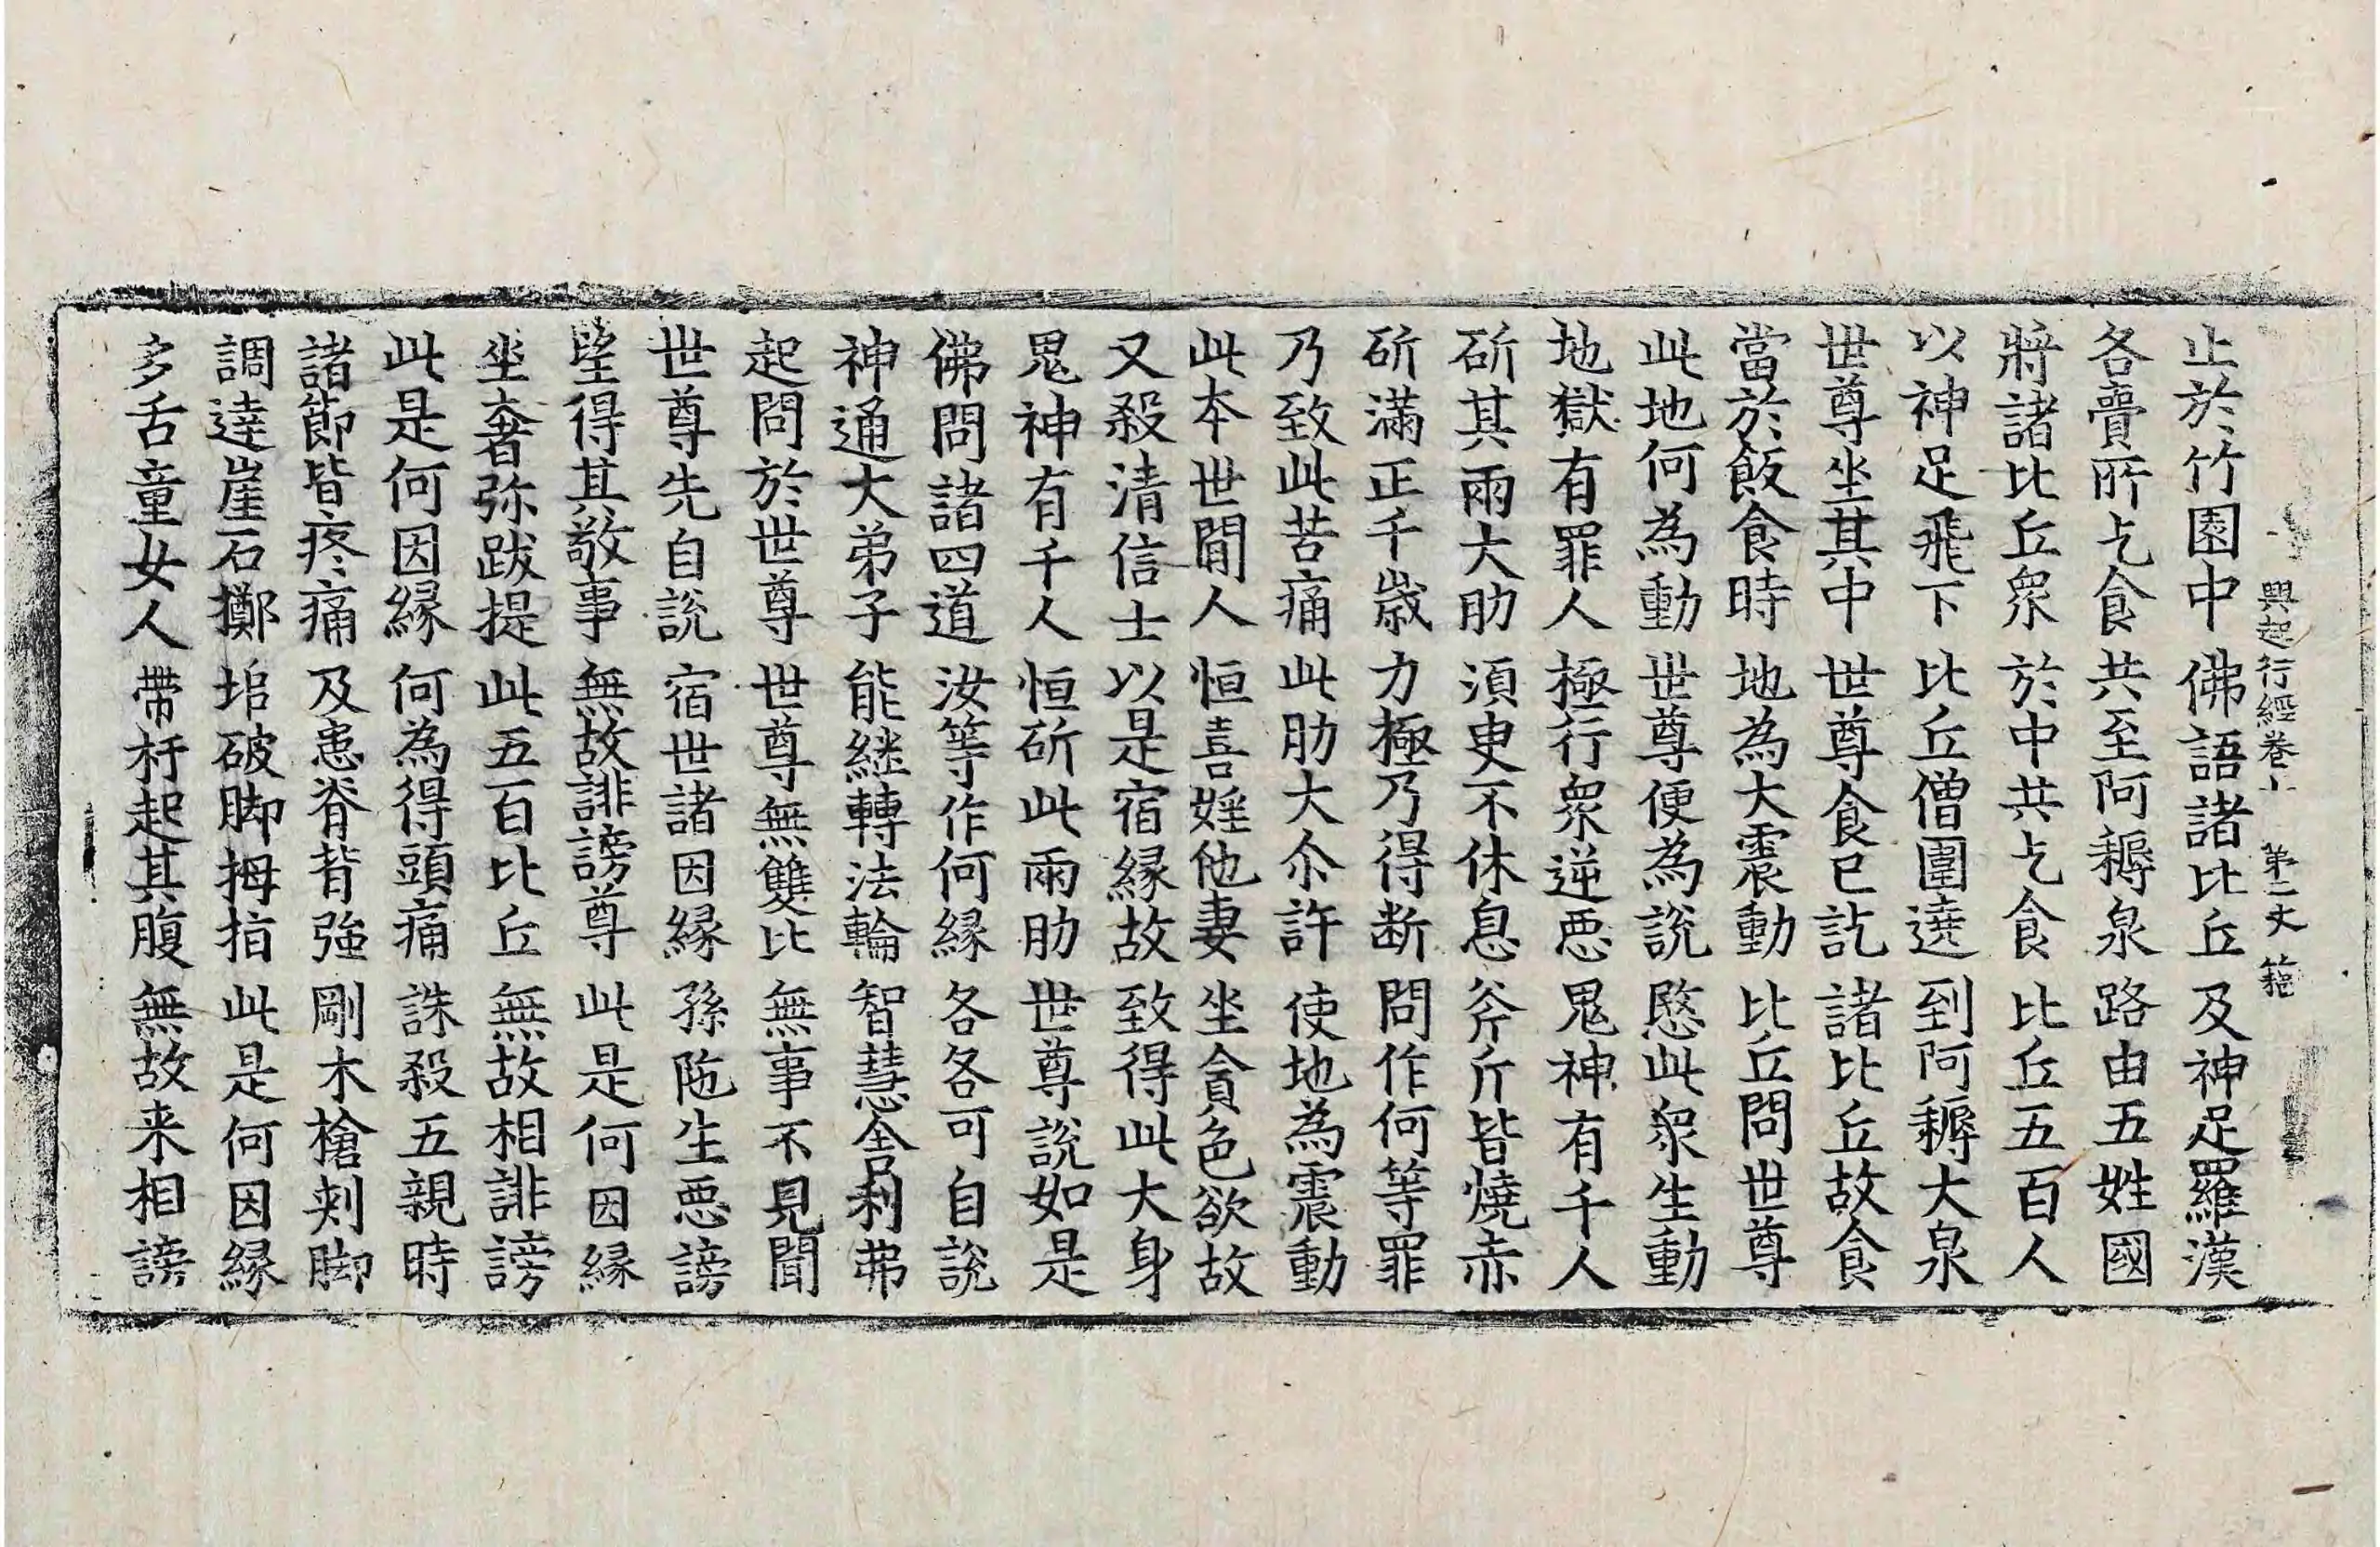 興起行經卷上 第二丈 籍
止於竹園中 佛語諸比丘 及神足羅漢
各賷所乞食 共至阿耨泉 路由五姓國
將諸比丘衆 於中共乞食 比丘五百人
以神足飛下 比丘僧圍遶 到阿耨大泉
世尊坐其中 世尊食已訖 諸比丘故食
當於飯食時 地為大震動 比丘問世尊
此地何為動 世尊便為說 愍此衆生動
地獄有罪人 極行衆逆惡 鬼神有千人
斫其兩大肋 須臾不休息 斧斤皆燒赤
斫滿正千歲 力極乃得斷 問作何等罪
乃致此苦痛 此肋大尒許 使地為震動
此本世間人 恒喜婬他妻 坐貪色欲故
又殺清信士 以是宿緣故 致得此大身
鬼神有千人 恒斫此兩肋 世尊說如是
佛問諸四道 汝等作何緣 各各可自說
神通大弟子 能継轉法輪 智慧舍利弗
起問於世尊 世尊無雙比 無事不見聞
世尊先自說 宿世諸因緣 孫陁生惡謗
望得其敬事 無故誹謗尊 此是何因緣
坐奢弥跋提 此五百比丘 無故相誹謗
此是何因緣 何為得頭痛 誅殺五親時
諸節皆疼痛 及患脊背強 剛木槍刾脚
調達崖石擲 掊破脚拇指 此是何因緣
多舌童女人 帶杅起其腹 無故来相謗